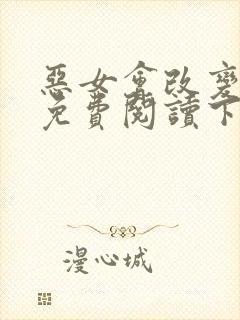 惡女會改變
免費閱讀下
漫心城